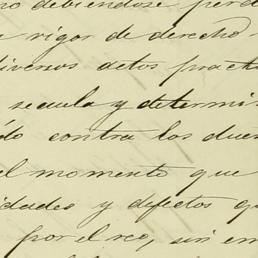 no debiendose perd
rigor de derecho
diversos actos pract
secuela y determi
do contra los due
el momento que
idades y defectos q
por el reo, sin em